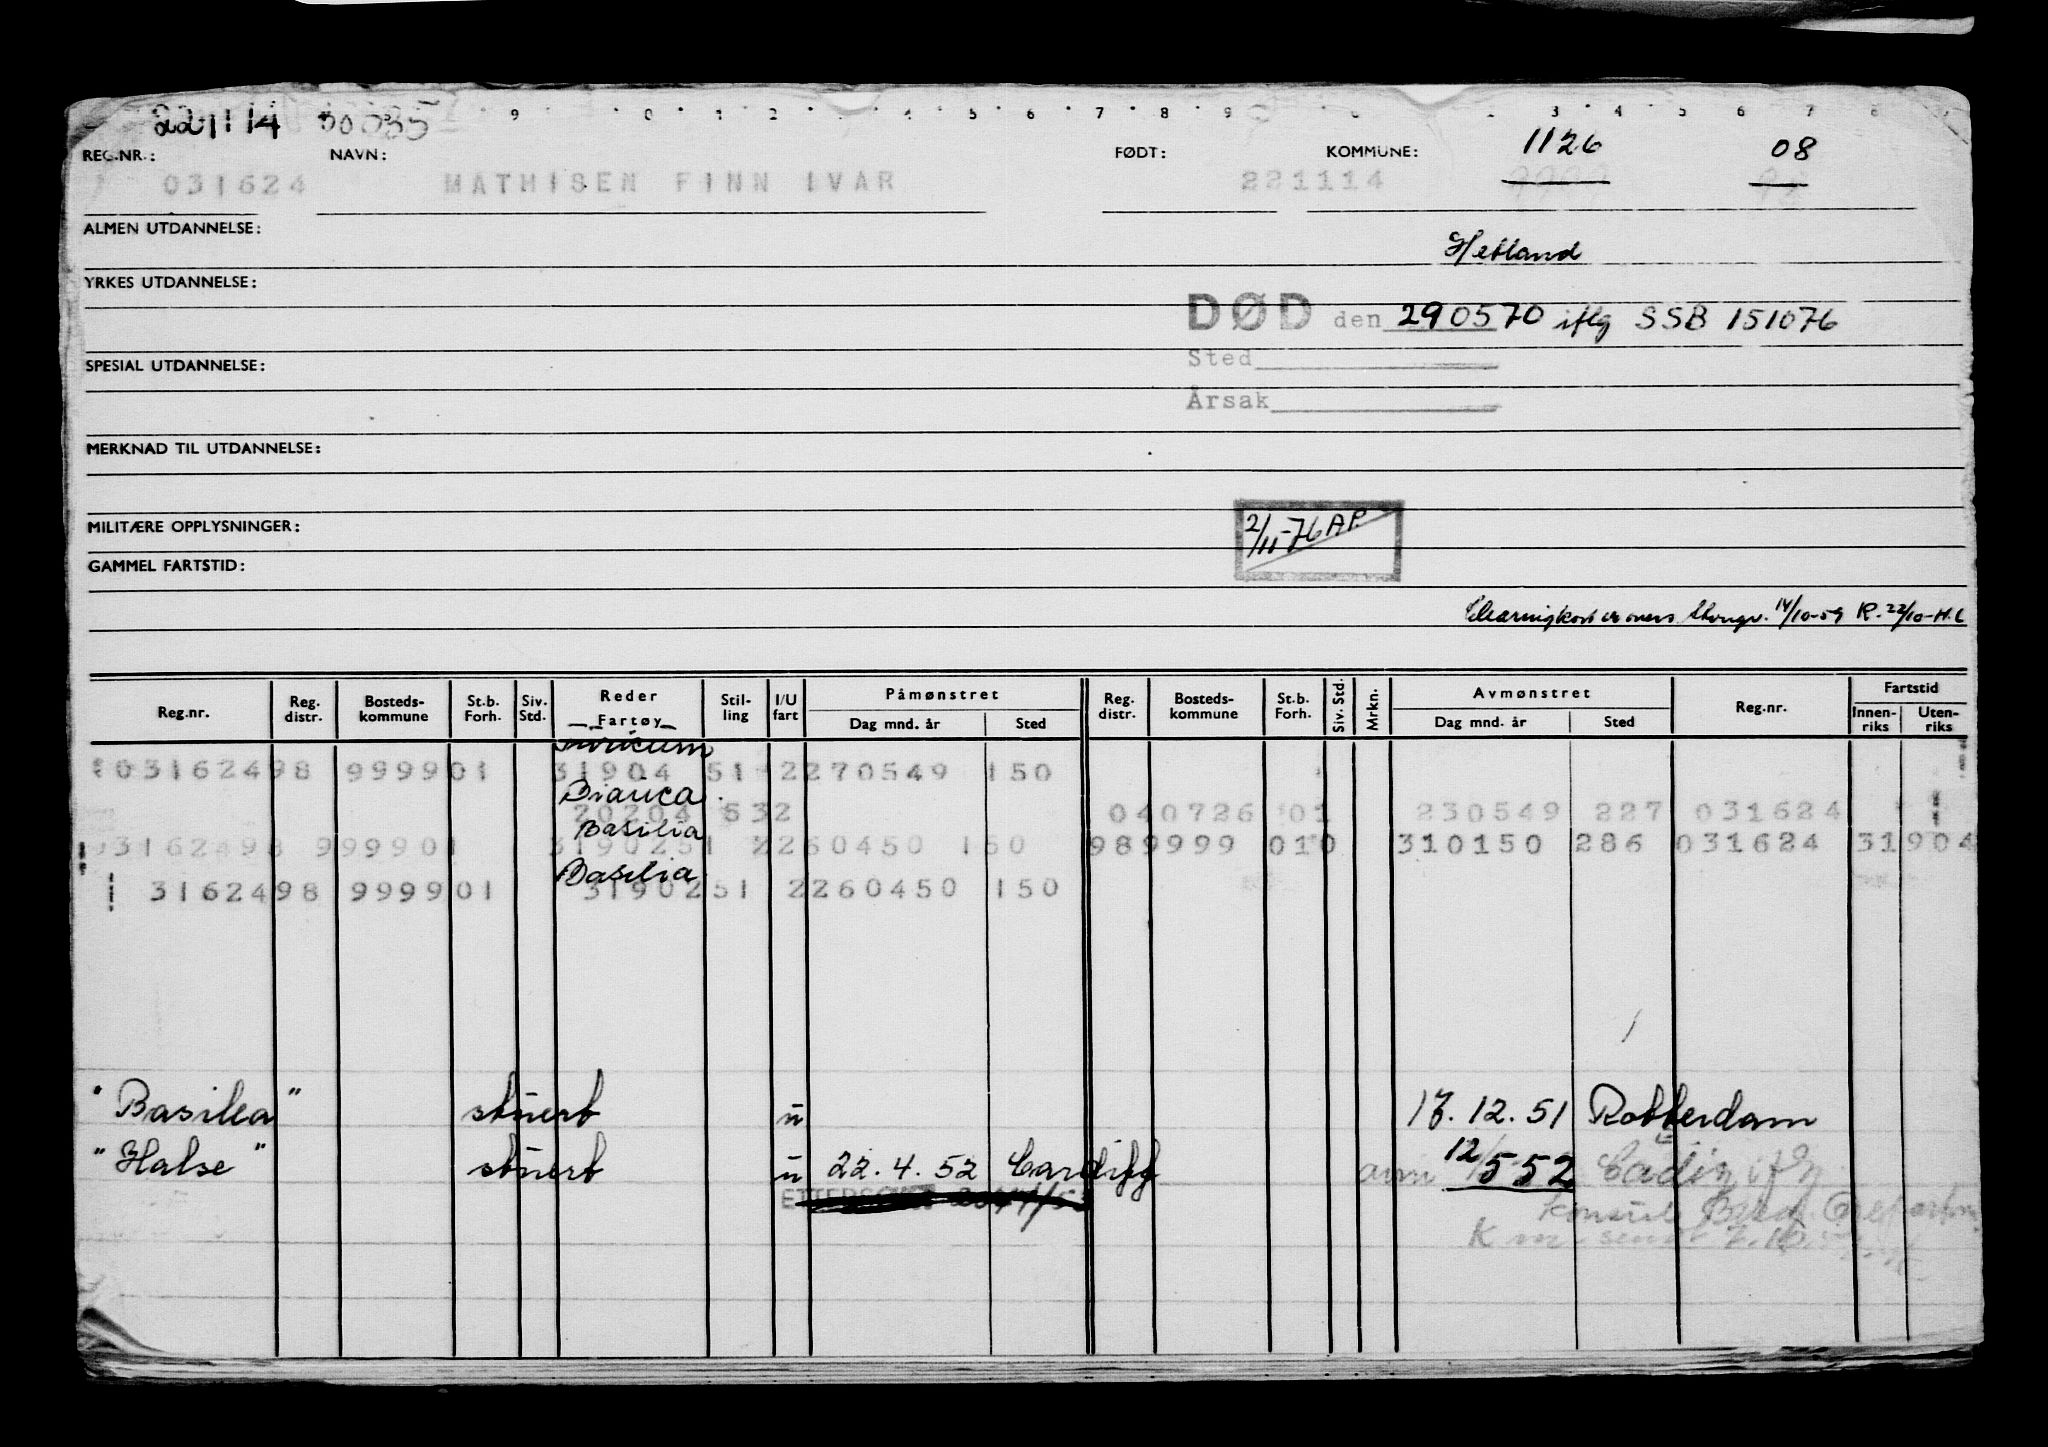 221114 50535
9 0 1 2 4 5 6 7 8 9 3 4 5 6 7 8
REG.NR.: NAVN: FØDT: KOMMUNE: 1126 08
031624 MATHISEN FINN IVAR 221114
ALMEN UTDANNELSE:
Hetland
YRKES UTDANNELSE:
DØD den 290570 iflg SSB 151076
Sted
SPESIAL UTDANNELSE:
Årsak
MERKNAD TIL UTDANNELSE:
MILITÆRE OPPLYSNINGER: 2/11-76 AP.
GAMMEL FARTSTID:
14/10-59 K. 22/10-H.L
Reg.nr. Reg. distr. Bosteds-kommune St.b. Forh. Siv. Std. Reder Fartøy Stil-ling I/U fart Påmønstret Dag mnd. år Sted Reg. distr. Bosteds-kommune St.b. Forh. Siv. Std. Mrkn. Avmønstret Dag mnd. år Sted Reg.nr. Fartstid Innen-riks Uten-riks
03162498 999901 31904 51 2270549 150
Bianca
20204 532 040726 01 230549 227 031624
Basilia
3162498 999901 3190251 2260450 150 989999 010 310150 286 031624 31904
Basilia
3162498 999901 3190251 2260450 150
"Basilea" stuert u 17.12.51 Rotterdam
"Halse" stuert u 22.4.52 Cardiff 12/552 Cadiz
konsul
K